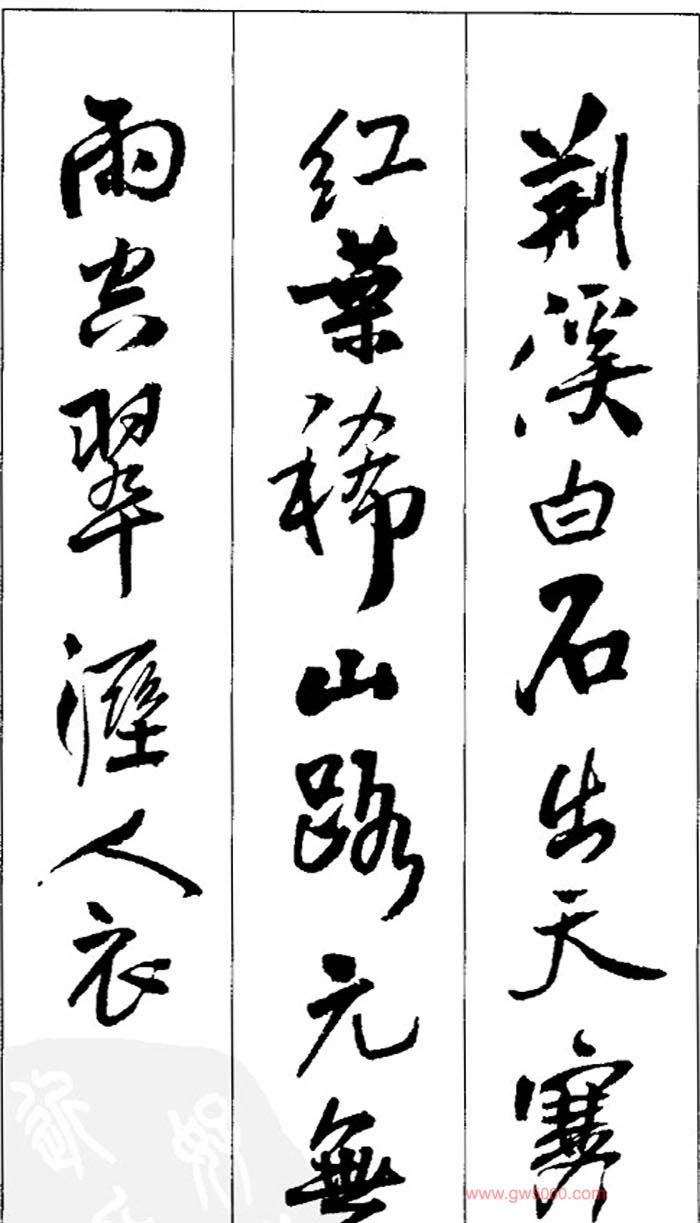 荆溪白石出天寒
红葉稀山路元無
雨空翠溼人衣
www.gw5000.com